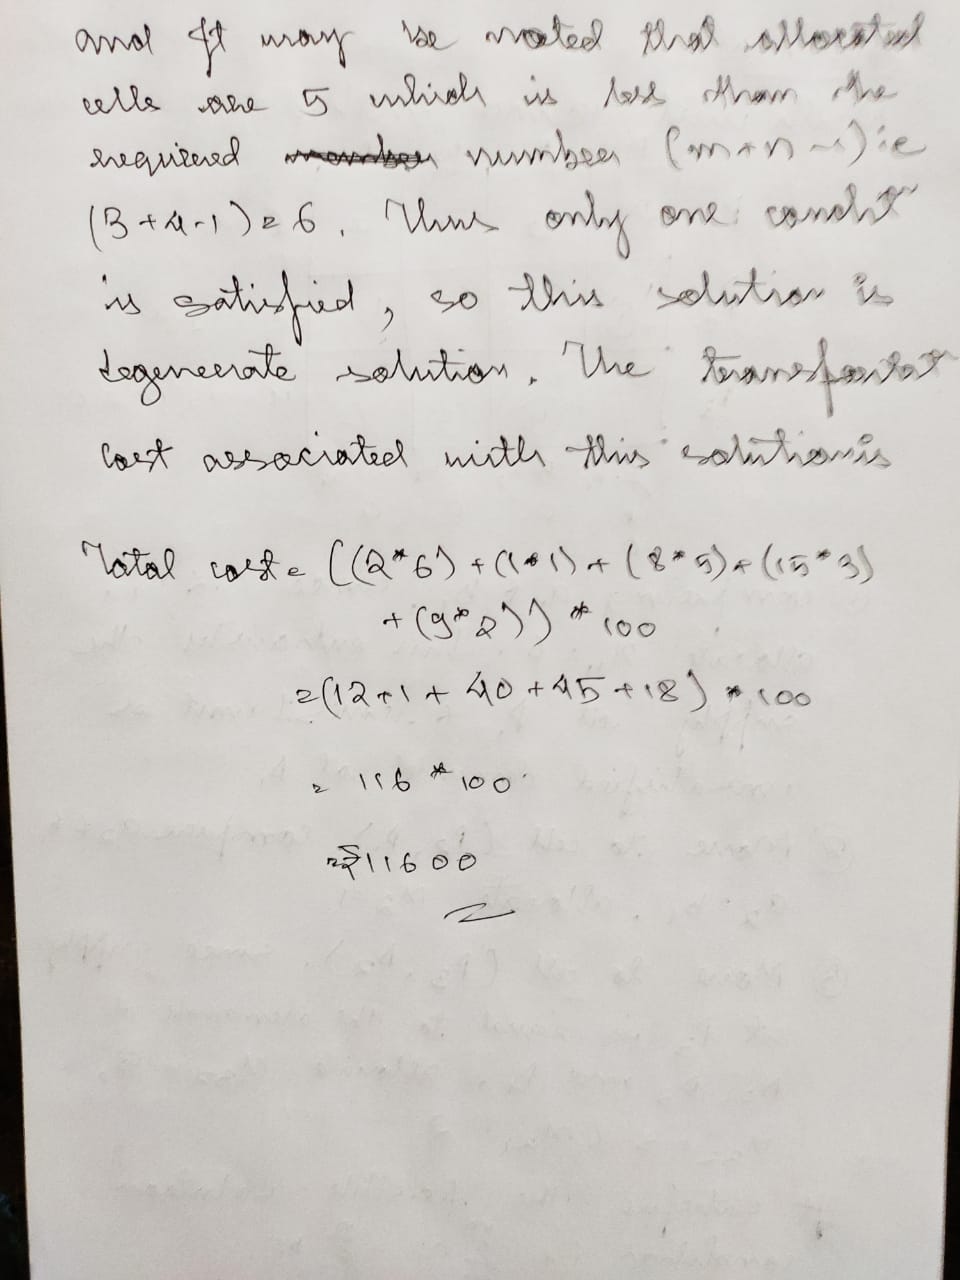 and It may be noted that allocated
cells are 5 which is less than the
required number (m+n-1) ie
(3+4-1)=6. Thus only one condit
is satisfied, so this solution is
degenerate solution. The transportat
cost associated with this solution is
Total cost = ((2*6) + (1*1) + (8*5) + (15*3)
+ (9*2)) * 100
= (12+1+40+45+18) * 100
= 116 * 100
= ₹11600